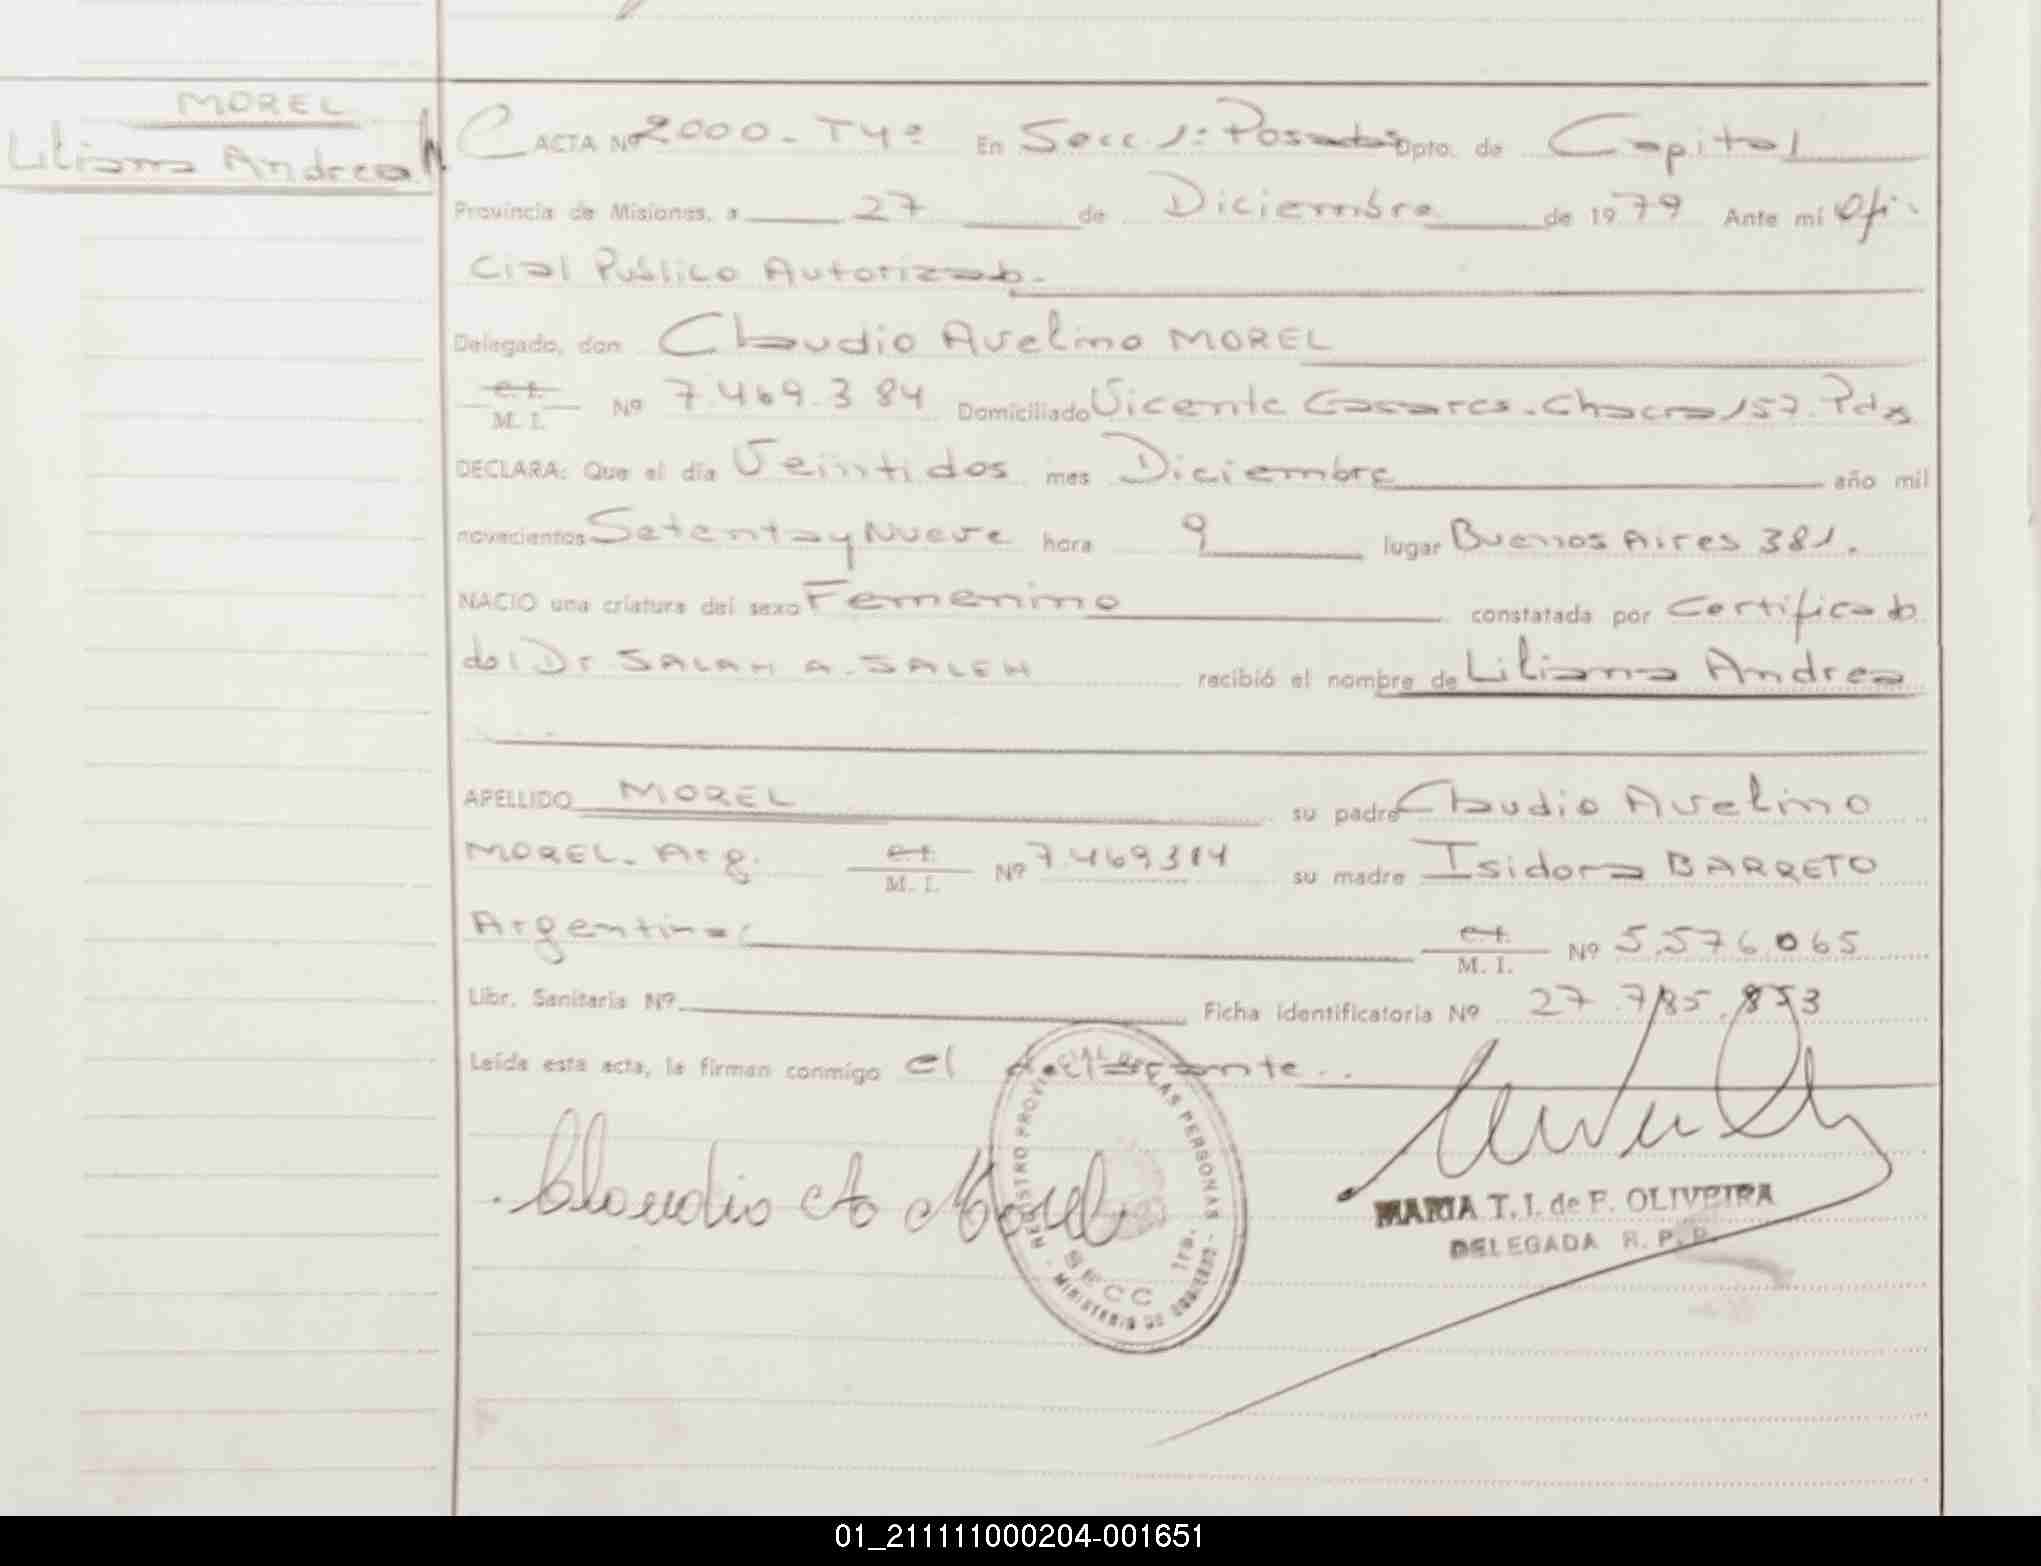 MOREL
Liliana Andrea
ACTA Nº 2000 - Tº 4º En Secc. 1ª Posadas Dpto. de Capital
Provincia de Misiones, a 27 de Diciembre de 1979 Ante mí Ofi-
cial Publico Autorizado.
Delegado, don Claudio Avelino MOREL
c.i.
M. I. Nº 7.469.384 Domiciliado Vicente Casares. Chacra 157. Pdas
DECLARA: Que el día Veintidos mes Diciembre año mil
novecientos Setenta y Nueve hora 9 lugar Buenos Aires 381.
NACIO una criatura del sexo Femenino constatada por Certificado
del Dr SALAH A. SALEH recibió el nombre de Liliana Andrea
APELLIDO MOREL su padre Claudio Avelino
MOREL. Arg. c.i.
M. I. Nº 7.469384 su madre Isidora BARRETO
Argentina. c.i.
M. I. Nº 5.576.065
Libr. Sanitaria Nº Ficha identificatoria Nº 27.785.853
Leída esta acta, la firman conmigo el declarante..
Claudio A Morel
REGISTRO PROVINCIAL DE LAS PERSONAS
SECC 1ra.
- MINISTERIO DE GOBIERNO -
MARIA T. I. de F. OLIVEIRA
DELEGADA R. P. P.
01_211111000204-001651